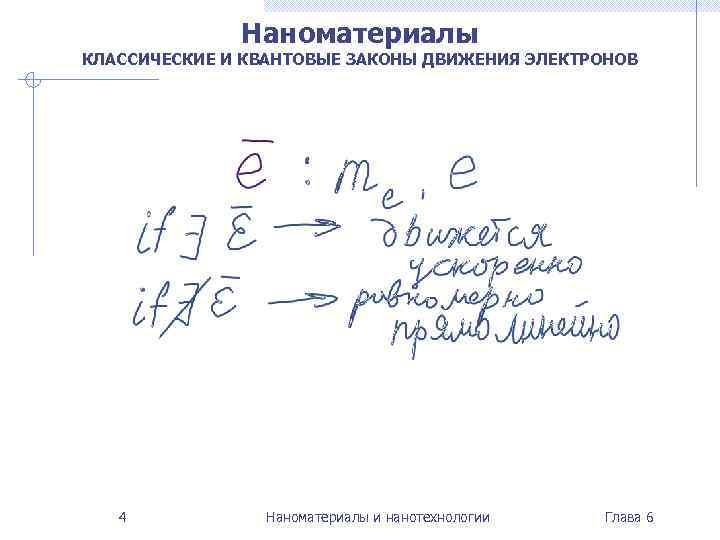 Наноматериалы
КЛАССИЧЕСКИЕ И КВАНТОВЫЕ ЗАКОНЫ ДВИЖЕНИЯ ЭЛЕКТРОНОВ
e̅ : mₑ, e
if ∃ ε̅ → движется
ускоренно
if ∄ ε̅ → равномерно
прямолинейно
4 Наноматериалы и нанотехнологии Глава 6